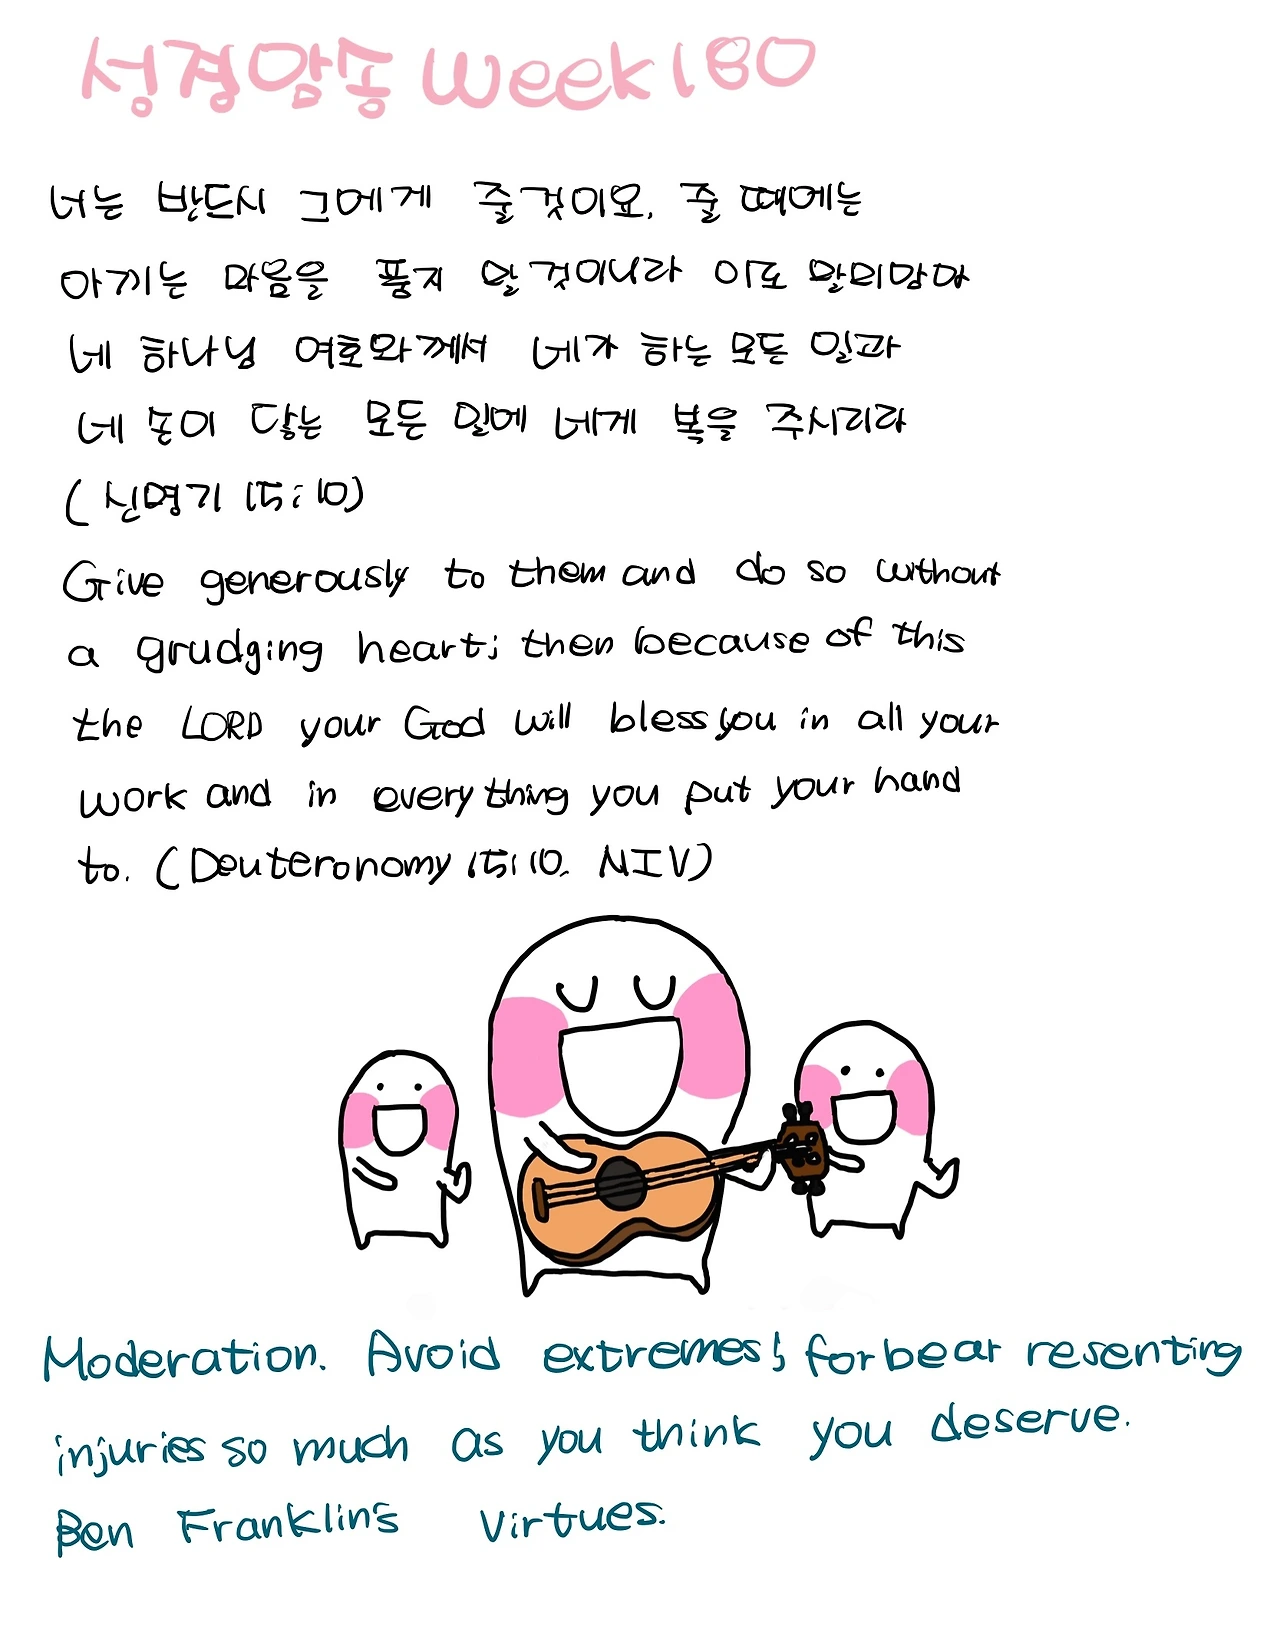 성경암송 Week 180
너는 반드시 그에게 줄 것이요, 줄 때에는
아끼는 마음을 품지 말 것이니라 이로 말미암아
네 하나님 여호와께서 네가 하는 모든 일과
네 손이 닿는 모든 일에 네게 복을 주시리라
(신명기 15:10)
Give generously to them and do so without
a grudging heart; then because of this
the LORD your God will bless you in all your
work and in everything you put your hand
to. (Deuteronomy 15:10. NIV)
Moderation. Avoid extremes; forbear resenting
injuries so much as you think you deserve.
Ben Franklin's virtues.